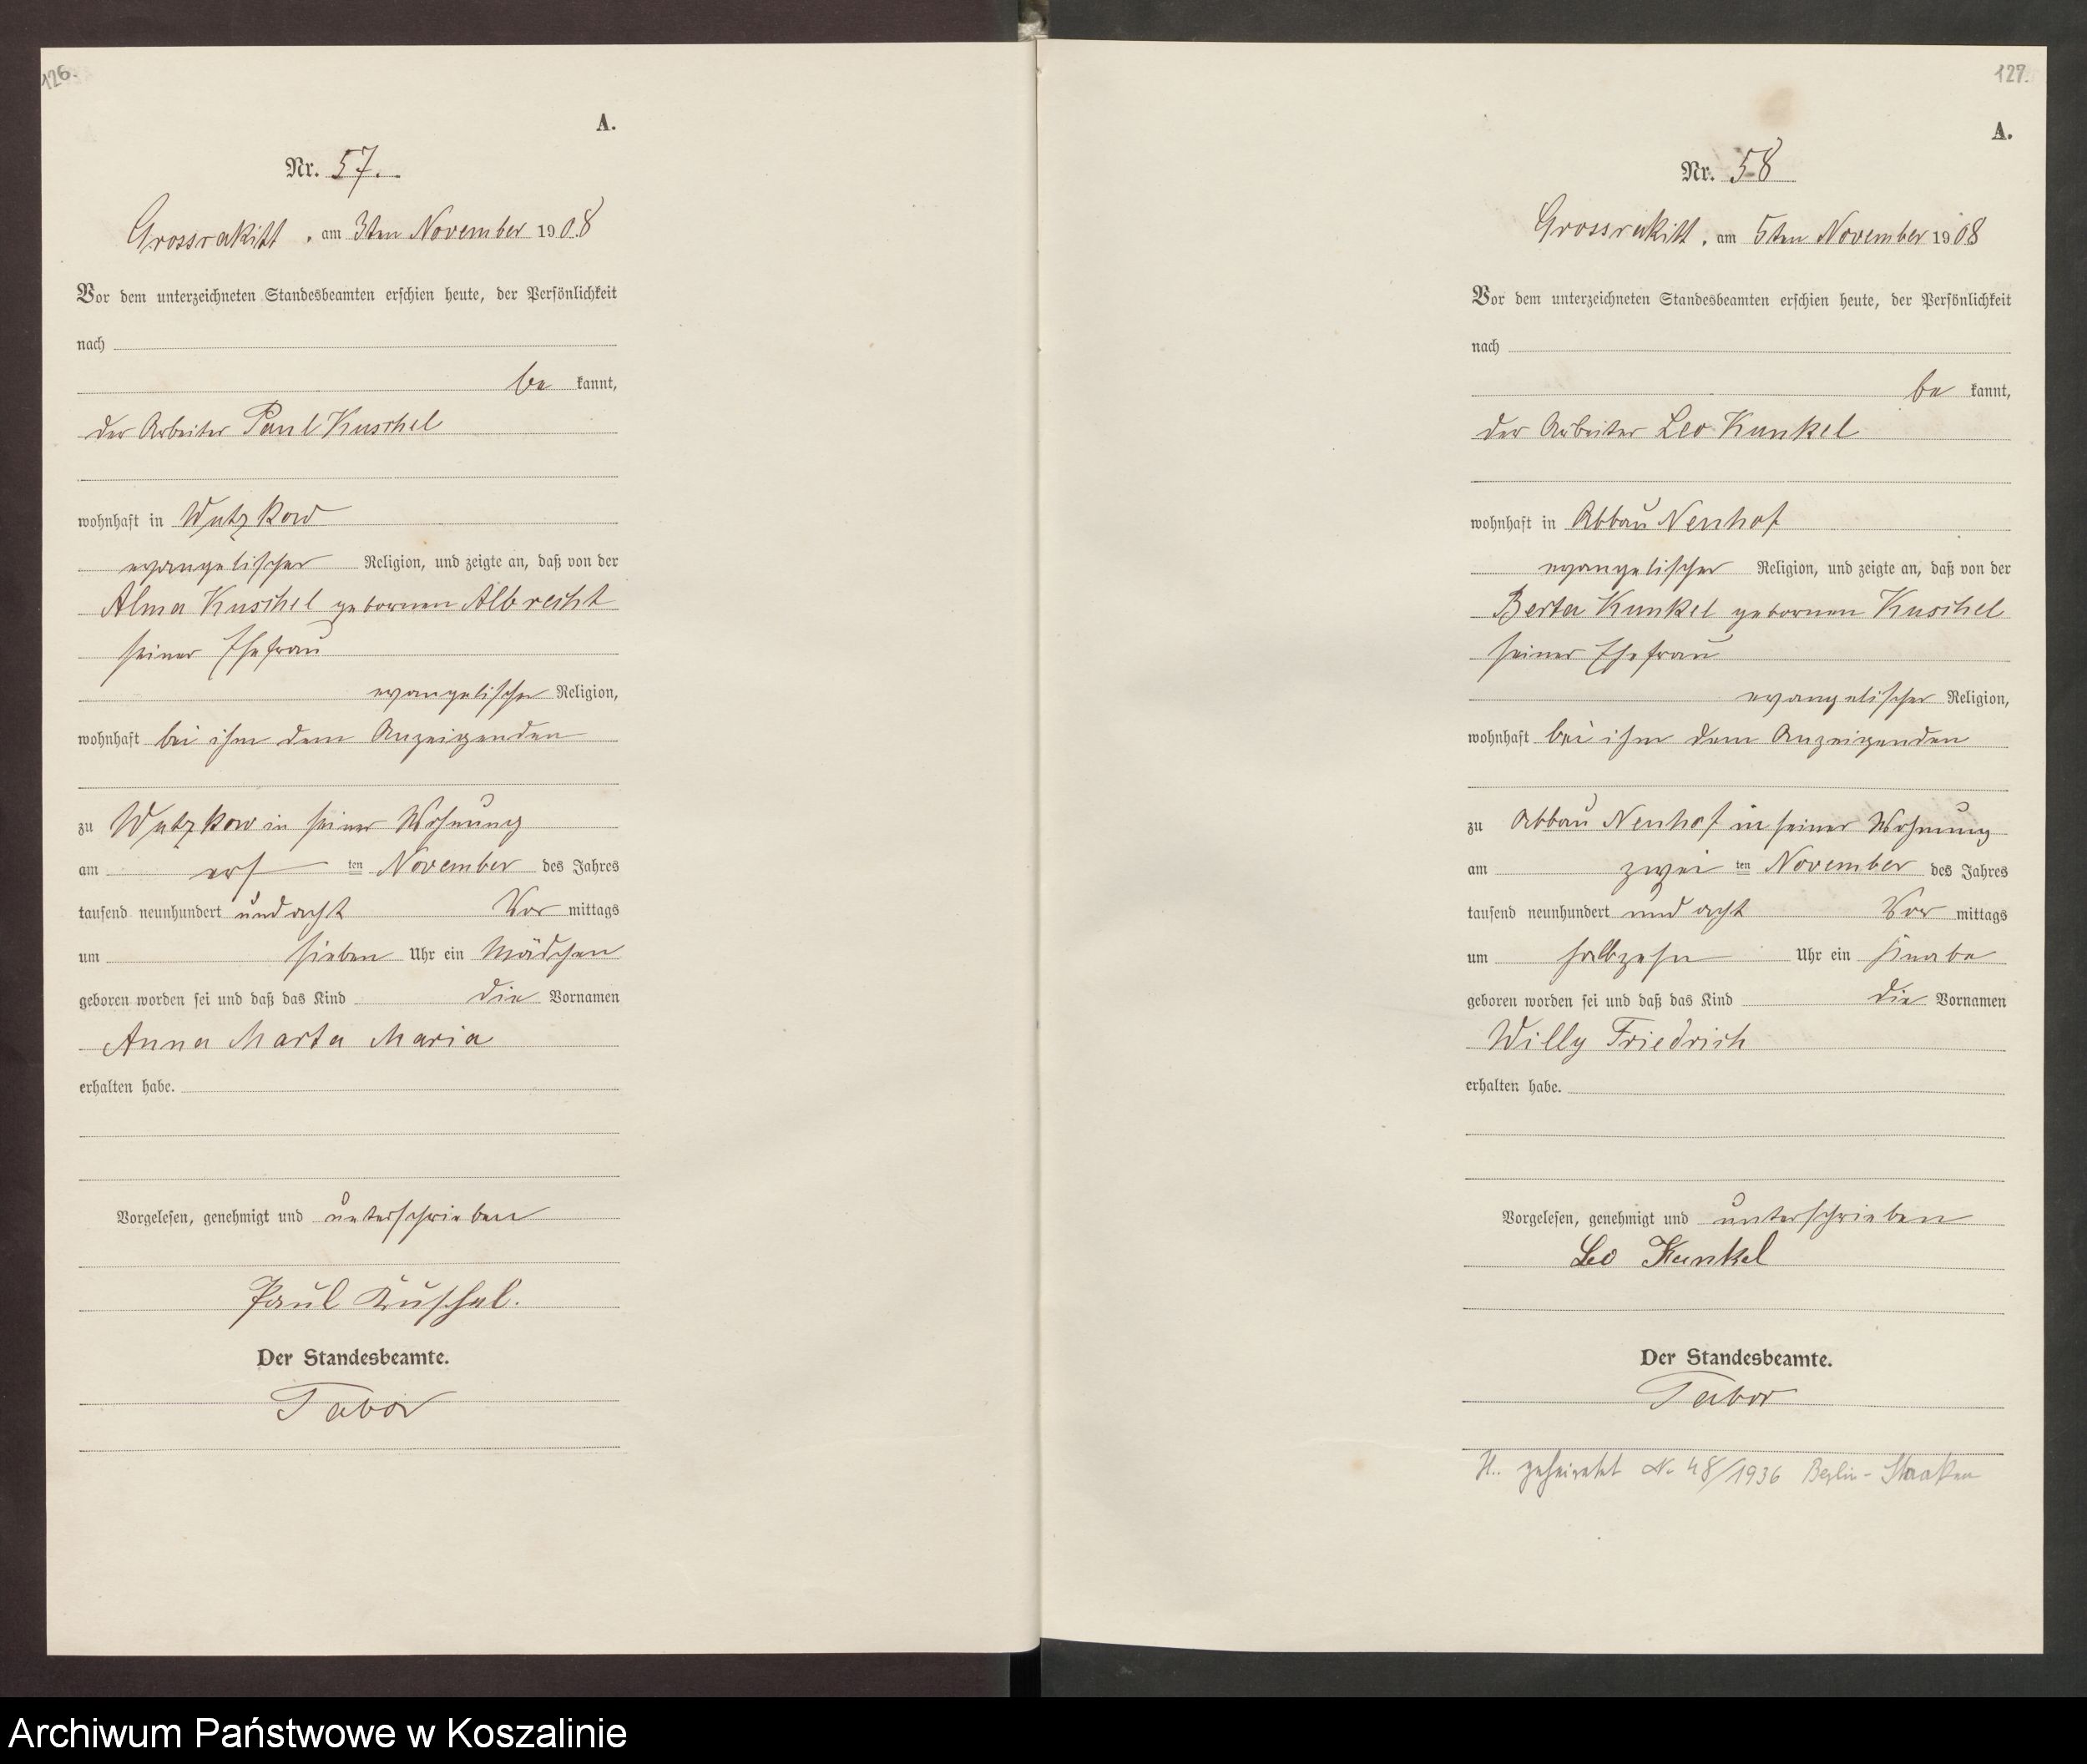 126.
A.
Nr. 57.
Grossrakitt, am 3ten November 1908
Vor dem unterzeichneten Standesbeamten erschien heute, der Persönlichkeit
nach
be kannt,
der Arbeiter Paul Kuschel
wohnhaft in Wutzkow
evangelischer Religion, und zeigte an, daß von der
Alma Kuschel gebornen Albrecht
seiner Ehefrau
evangelischer Religion,
wohnhaft bei ihm dem Anzeigenden
zu Wutzkow in seiner Wohnung
am ers ten November des Jahres
tausend neunhundert und acht Vor mittags
um sieben Uhr ein Mädchen
geboren worden sei und daß das Kind die Vornamen
Anna Marta Maria
erhalten habe.
Vorgelesen, genehmigt und unterschrieben
Paul Kuschel.
Der Standesbeamte.
Tabor
127.
A.
Nr. 58
Grossrakitt, am 5ten November 1908
Vor dem unterzeichneten Standesbeamten erschien heute, der Persönlichkeit
nach
be kannt,
der Arbeiter Leo Kunkel
wohnhaft in Abbau Neuhof
evangelischer Religion, und zeigte an, daß von der
Berta Kunkel gebornen Kuschel
seiner Ehefrau
evangelischer Religion,
wohnhaft bei ihm dem Anzeigenden
zu Abbau Neuhof in seiner Wohnung
am zwei ten November des Jahres
tausend neunhundert und acht Vor mittags
um halbzehn Uhr ein Knabe
geboren worden sei und daß das Kind die Vornamen
Willy Friedrich
erhalten habe.
Vorgelesen, genehmigt und unterschrieben
Leo Kunkel
Der Standesbeamte.
Tabor
geheiratet Nr 48/1936 Berlin-Staaken
Archiwum Państwowe w Koszalinie